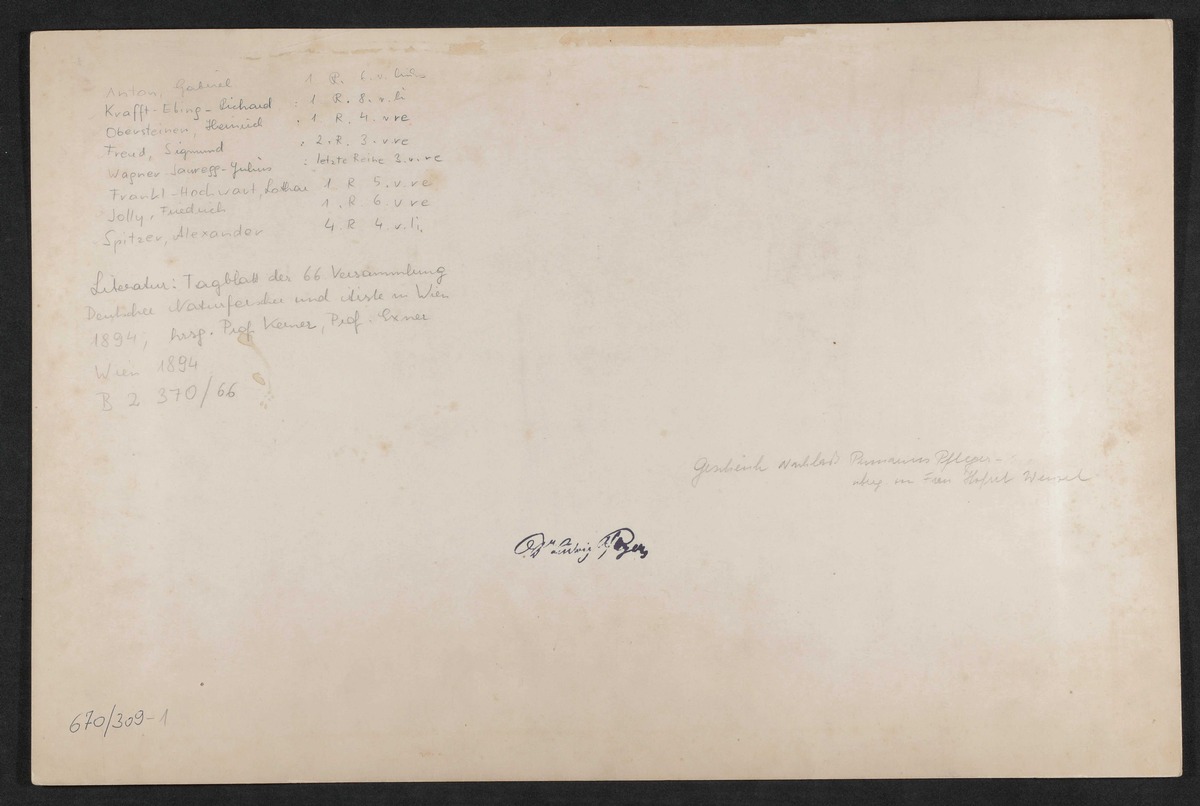 Anton, Gabriel 1 R. 6. v. links
Krafft-Ebing-Richard : 1 R. 8. v. li
Obersteiner, Heinrich : 1 R. 4. v re
Freud, Sigmund : 2. R. 3. v re
Wagner Jauregg-Julius : letzte Reihe 3. v. re
Frankl-Hochwart, Lothar 1 R 5. v re
Jolly, Friedrich 1. R 6 v re
Spitzer, Alexander 4. R 4. v. li.
Literatur: Tagblatt der 66 Versammlung
Deutscher Naturforscher und Ärzte in Wien
1894, hrsg. Prof. Kerner, Prof. Exner
Wien 1894
B 2 370/66
Geschenk Nachlass
Frau Hofrat Wenzel
Dr. Ludwig
670/309-1